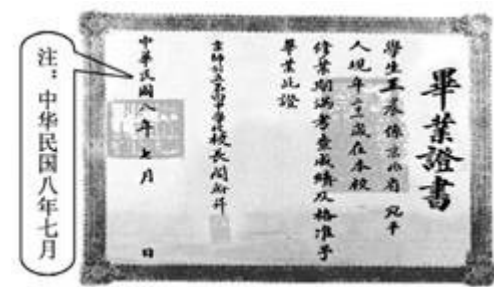 畢業證書
學生王 係京兆省宛平
人現年 歲在本校
修業期滿考查成績及格准予
畢業此證
京師 中學校校長閻
中華民國八年七月 日
注：中华民国八年七月